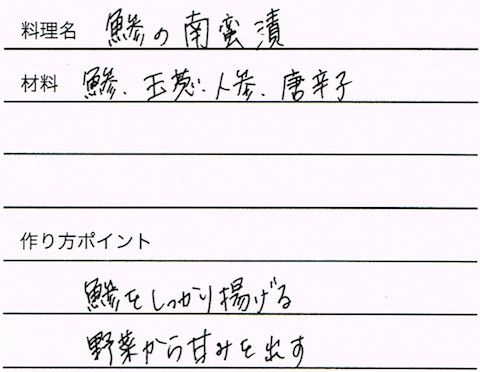 料理名 鯵の南蛮漬
材料 鯵、玉葱、人参、唐辛子
作り方ポイント
鯵をしっかり揚げる
野菜から甘みを出す